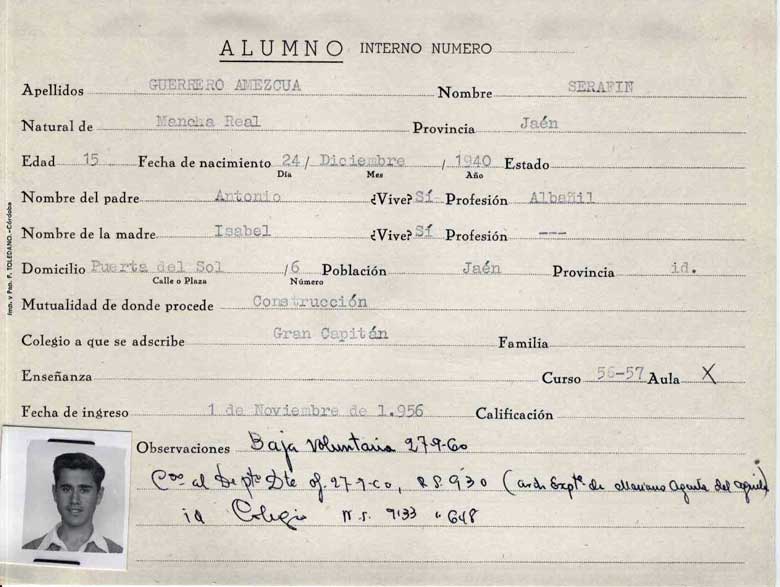 ALUMNO INTERNO NUMERO
Apellidos GUERRERO AMEZCUA Nombre SERAFIN
Natural de Mancha Real Provincia Jaén
Edad 15 Fecha de nacimiento 24 / Diciembre / 1940 Estado
Día Mes Año
Nombre del padre Antonio ¿Vive? Sí Profesión Albañil
Nombre de la madre Isabel ¿Vive? Sí Profesión ---
Domicilio Puerta del Sol /6 Población Jaén Provincia id.
Calle o Plaza Número
Mutualidad de donde procede Construcción
Colegio a que se adscribe Gran Capitán Familia
Enseñanza Curso 56-57 Aula X
Fecha de ingreso 1 de Noviembre de 1.956 Calificación
Observaciones Baja voluntaria 27-9-60
al Dte of. 27-9-60, R.S. 930 ( de Mariano del
id Colegio N.S. 9133 648
Imp. y Pap. F. TOLEDANO.-Córdoba